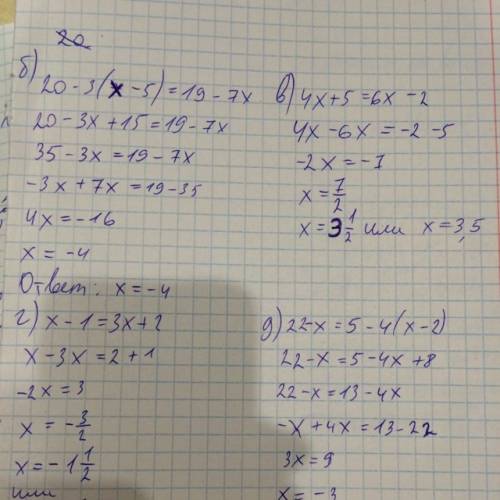 20
б) 20 - 3(x - 5) = 19 - 7x
20 - 3x + 15 = 19 - 7x
35 - 3x = 19 - 7x
-3x + 7x = 19 - 35
4x = -16
x = -4
Ответ: x = -4
в) 4x + 5 = 6x - 2
4x - 6x = -2 - 5
-2x = -7
x = 7/2
x = 3 1/2 или x = 3,5
г) x - 1 = 3x + 2
x - 3x = 2 + 1
-2x = 3
x = -3/2
x = -1 1/2
или
д) 22 - x = 5 - 4(x - 2)
22 - x = 5 - 4x + 8
22 - x = 13 - 4x
-x + 4x = 13 - 22
3x = 9
x = -3